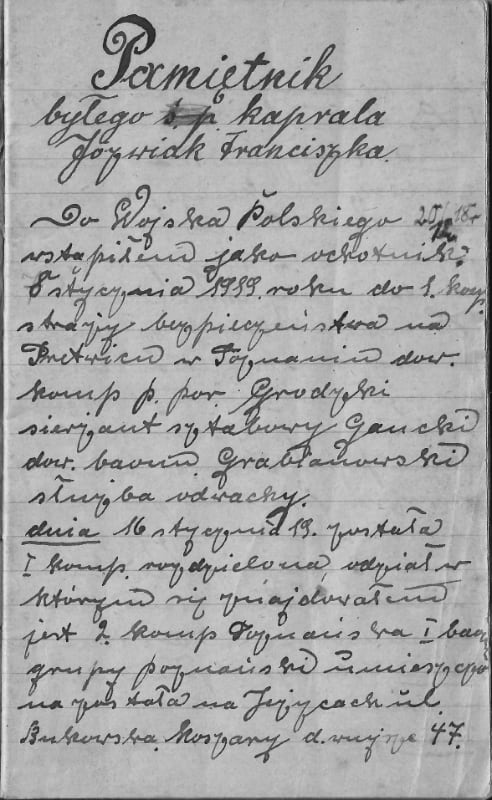 Pamiętnik
byłego kaprala
Józwiak Franciszka.
Do Wojska Polskiego
wstąpiłem jako ochotnik
8 stycznia 1919. roku do 1. komp.
straży bezpieczeństwa na
w Poznaniu dow.
komp p. por Grodzki
sierżant sztabowy Gaucki
dow. baonu Grabianowski
służba odwachy.
dnia 16 stycznia 19. została
I komp. rozdzielona, odział w
którym się znajdowałem
jest 2. komp Poznańska I baon
grupy poznański umieszczo
na została na Jeżycach ul.
Bukowska Koszary d. wujsk 47.